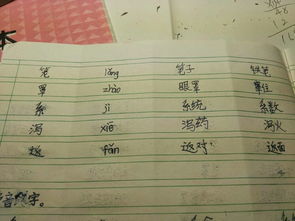 笼 lǒng 笼子 铁笼
罩 zhào 眼罩 罩住
系 jì 系统 系数
泻 xiè 泻药 泻火
返 fǎn
音 字。